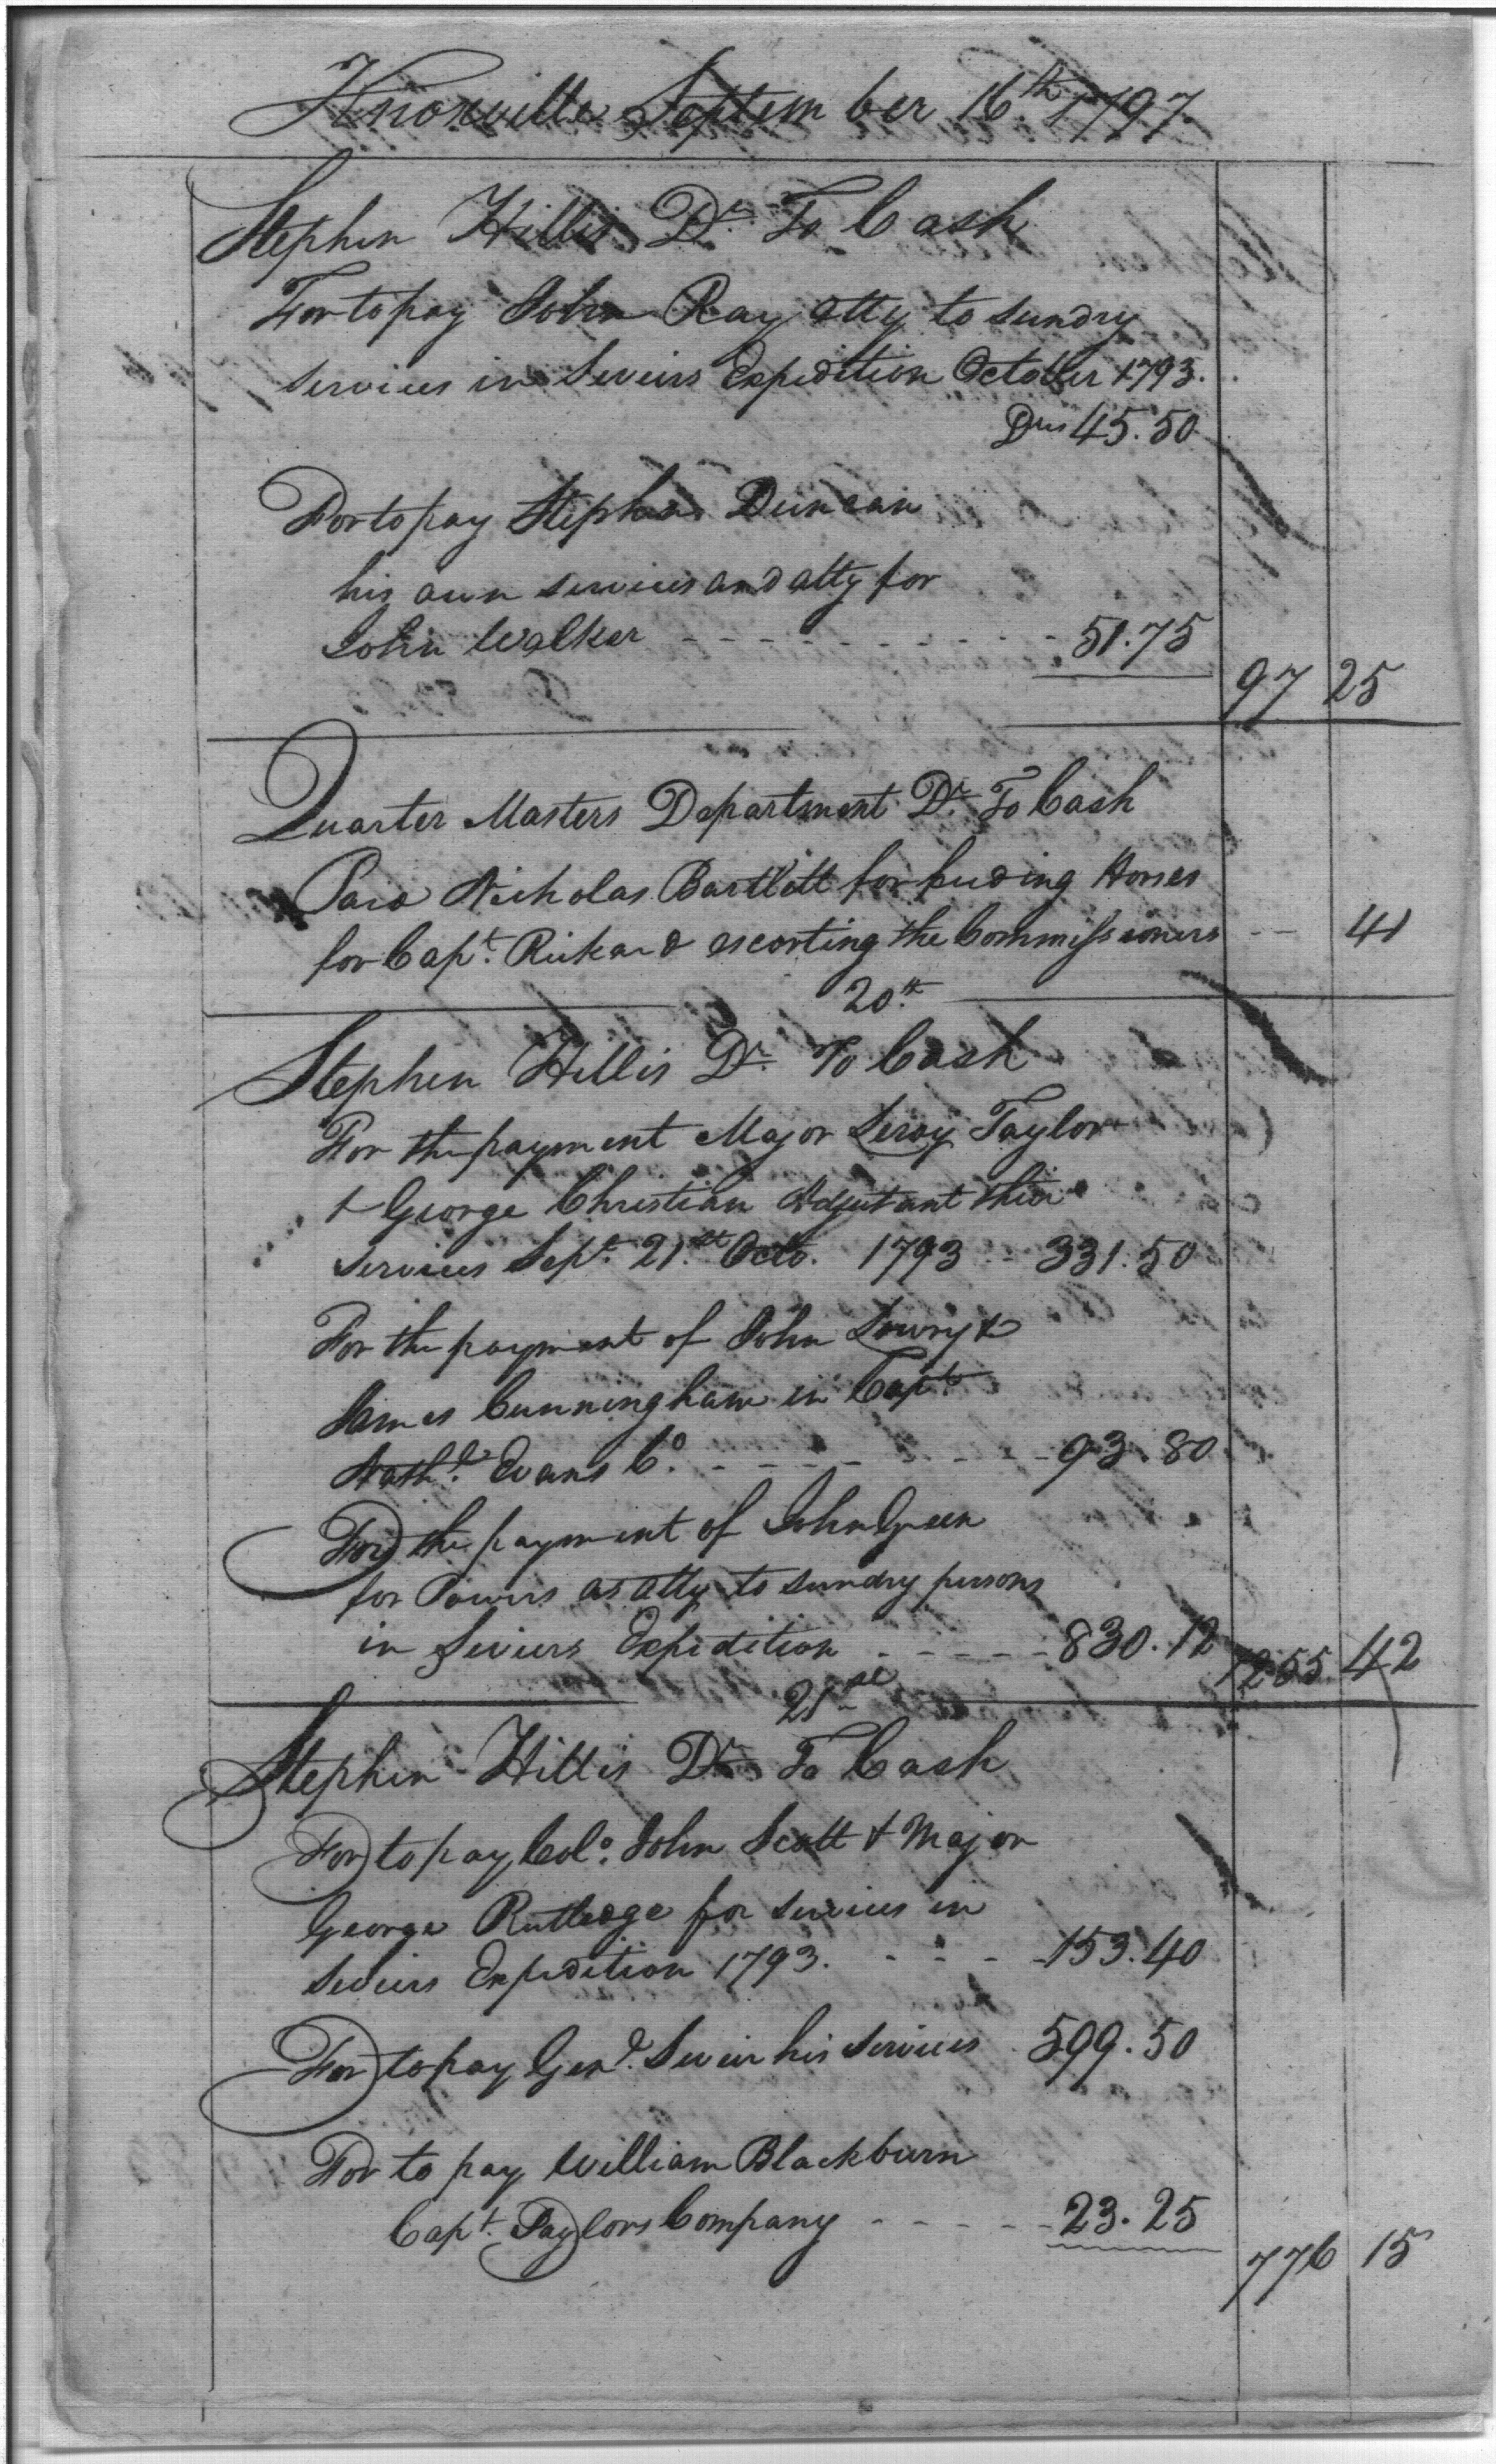 Knoxville September 16th 1797.
Stephen Hillis Dr. To Cash
For to pay John Ray atty to sundry
services in Seviers Expedition October 1793.
Drs 45.50
For to pay Stephen Duncan
his own services and atty for
John Walker - - - - - - - - - 51.75
97 25
Quarter Masters Department Dr. To Cash
Paid Nicholas Bartlett for feeding Horses
for Capt. Rickard escorting the Commissioners - - 41
20th
Stephen Hillis Dr. To Cash
For the payment Major Leroy Taylor
& George Christian Adjutant their
services Sept. 21st Octo. 1793 - - 331.50
For the payment of John Lowry &
James Cunningham in Capt.
Nathl. Evans Co. - - - - - - - 93.80
For the payment of John Green
for Powers as atty to sundry persons
in Seviers Expedition - - - - - 830.12
1255 42
21st
Stephen Hillis Dr To Cash
For to pay Colo. John Scott & Major
George Rutledge for services in
Seviers Expedition 1793. - - - 153.40
For to pay Genl. Sevier his services 599.50
For to pay William Blackburn
Capt. Taylors Company - - - - - 23.25
776 15